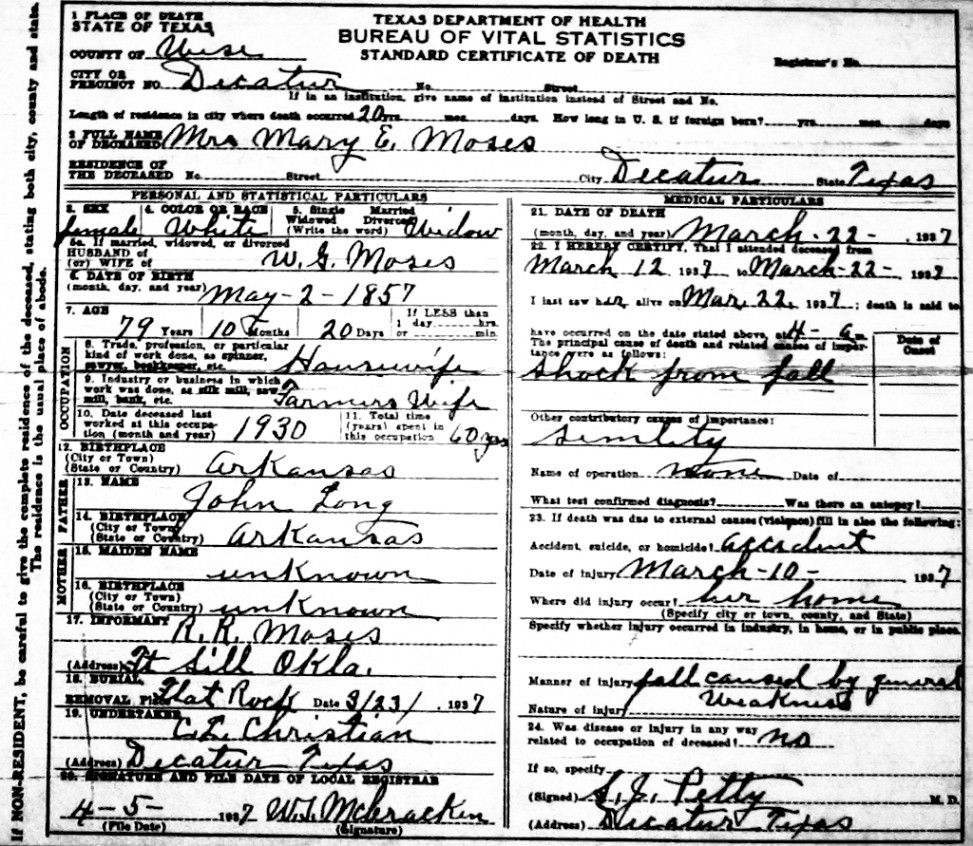 1 PLACE OF DEATH
STATE OF TEXAS
TEXAS DEPARTMENT OF HEALTH
BUREAU OF VITAL STATISTICS
STANDARD CERTIFICATE OF DEATH
COUNTY OF Wise
Registrar's No.
CITY OR
PRECINCT NO. Decatur No. Street
If in an institution, give name of institution instead of Street and No.
Length of residence in city where death occurred 20 yrs. mos. days. How long in U. S. if foreign born? yrs. mos. days
2 FULL NAME
OF DECEASED Mrs Mary E. Moses
RESIDENCE OF
THE DECEASED No. Street City Decatur State Texas
PERSONAL AND STATISTICAL PARTICULARS
3. SEX 4. COLOR OR RACE 5. Single Married
Widowed Divorced
(Write the word)
female White Widow
5a. If married, widowed, or divorced
HUSBAND of
(or) WIFE of W. G. Moses
6. DATE OF BIRTH
(month, day, and year) May-2-1857
7. AGE If LESS than
79 Years 10 Months 20 Days 1 day hrs.
or min.
OCCUPATION
8. Trade, profession, or particular
kind of work done, as spinner,
sawyer, bookkeeper, etc. Housewife
9. Industry or business in which
work was done, as silk mill, saw
mill, bank, etc. Farmers Wife
10. Date deceased last
worked at this occupa-
tion (month and year) 1930
11. Total time
(years) spent in
this occupation 60 yrs
12. BIRTHPLACE
(City or Town)
(State or Country) Arkansas
FATHER
13. NAME John Long
14. BIRTHPLACE
(City or Town)
(State or Country) Arkansas
MOTHER
15. MAIDEN NAME
unknown
16. BIRTHPLACE
(City or Town)
(State or Country) unknown
17. INFORMANT
R. R. Moses
(Address) Ft Sill Okla.
18. BURIAL
REMOVAL Place Flat Rock Date 3/23/, 1937
19. UNDERTAKER
C.L. Christian
(Address) Decatur Texas
20. SIGNATURE AND FILE DATE OF LOCAL REGISTRAR
4-5- 1937 W.S. McCracken
(File Date) (Signature)
MEDICAL PARTICULARS
21. DATE OF DEATH
(month, day, and year) March-22-, 1937
22. I HEREBY CERTIFY, That I attended deceased from
March 12 1937 to March-22-, 1937
I last saw her alive on Mar. 22, 1937; death is said to
have occurred on the date stated above, at 4- a m.
The principal cause of death and related causes of impor-
tance were as follows:
Date of
Onset
shock from fall
Other contributory causes of importance:
Name of operation none Date of
What test confirmed diagnosis? Was there an autopsy?
23. If death was due to external causes (violence) fill in also the following:
Accident, suicide, or homicide? accident
Date of injury March-10- 1937
Where did injury occur? her home
(Specify city or town, county, and State)
Specify whether injury occurred in industry, in home, or in public place.
Manner of injury fall caused by general
Nature of injury Weakness
24. Was disease or injury in any way
related to occupation of deceased? no
If so, specify
(Signed) S.J. Petty M. D.
(Address) Decatur Texas
If NON-RESIDENT, be careful to give the complete residence of the deceased, stating both city, county and state.
The residence is the usual place of abode.